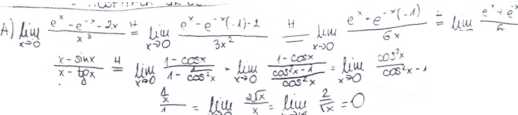 A) lim x→0 (e^x - e^-x - 2x)/x^3 H= lim x→0 (e^x - e^-x·(-1) - 2)/3x^2 H= lim x→0 (e^x + e^-x(-1))/6x H= lim (e^x + e^x
(x - sinx)/(x - tgx) H= lim x→0 (1 - cosx)/(1 - 1/cos²x) = lim x→0 (1 - cosx)/((cos²x - 1)/cos²x) = lim x→0 cos²x/(cos²x - 1
= lim 2√x/x = lim 2/√x = 0